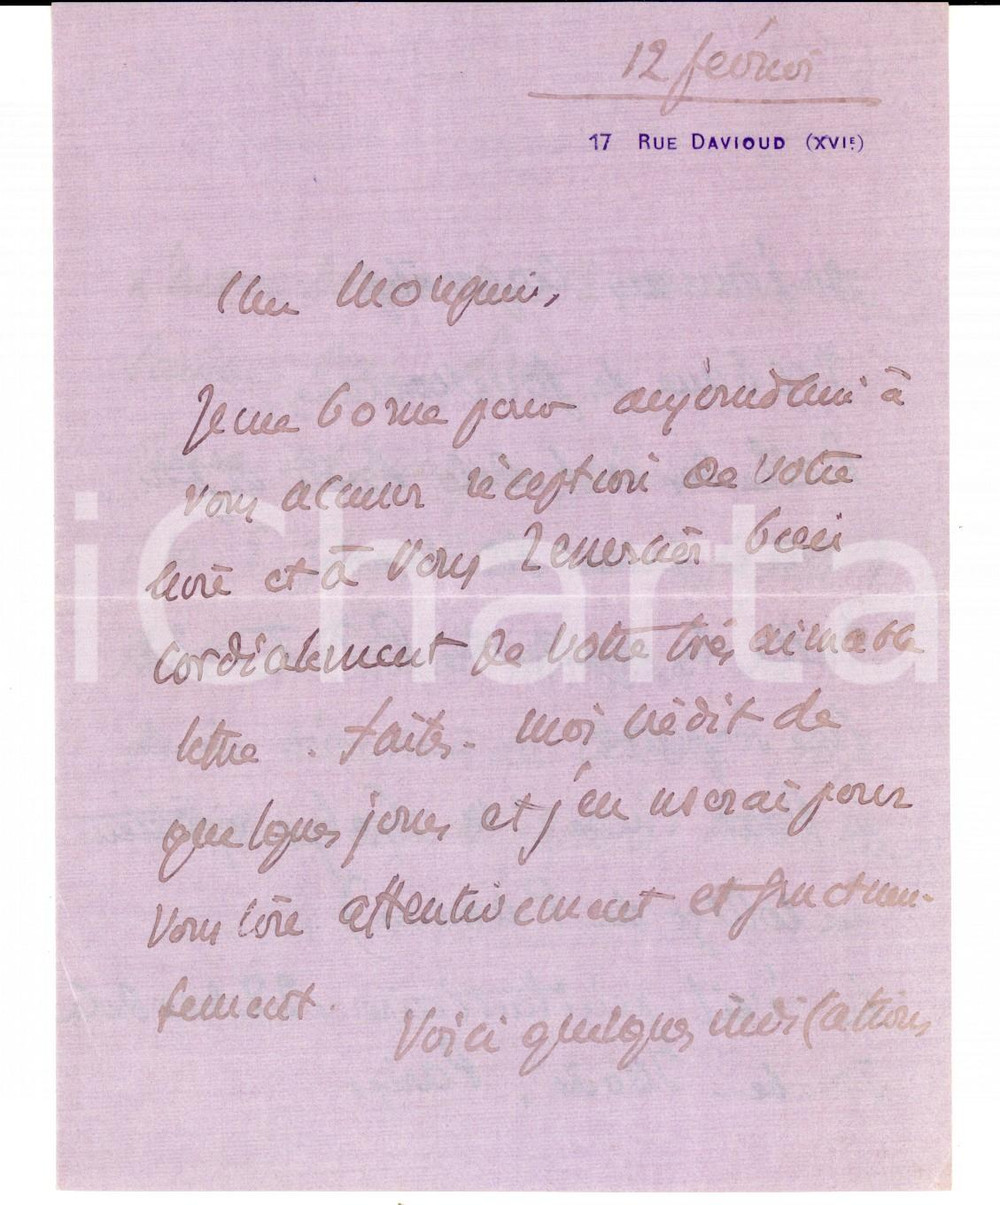 12 février
17 RUE DAVIOUD (XVIE)
Cher Monsieur,
Je me borne pour aujourd'hui à
vous accuser réception de votre
livre et à vous remercier bien
cordialement de votre très aimable
lettre. Faites-moi crédit de
quelques jours et j'en userai pour
vous lire attentivement et fructueu-
sement.
Voici quelques indications
iCharta